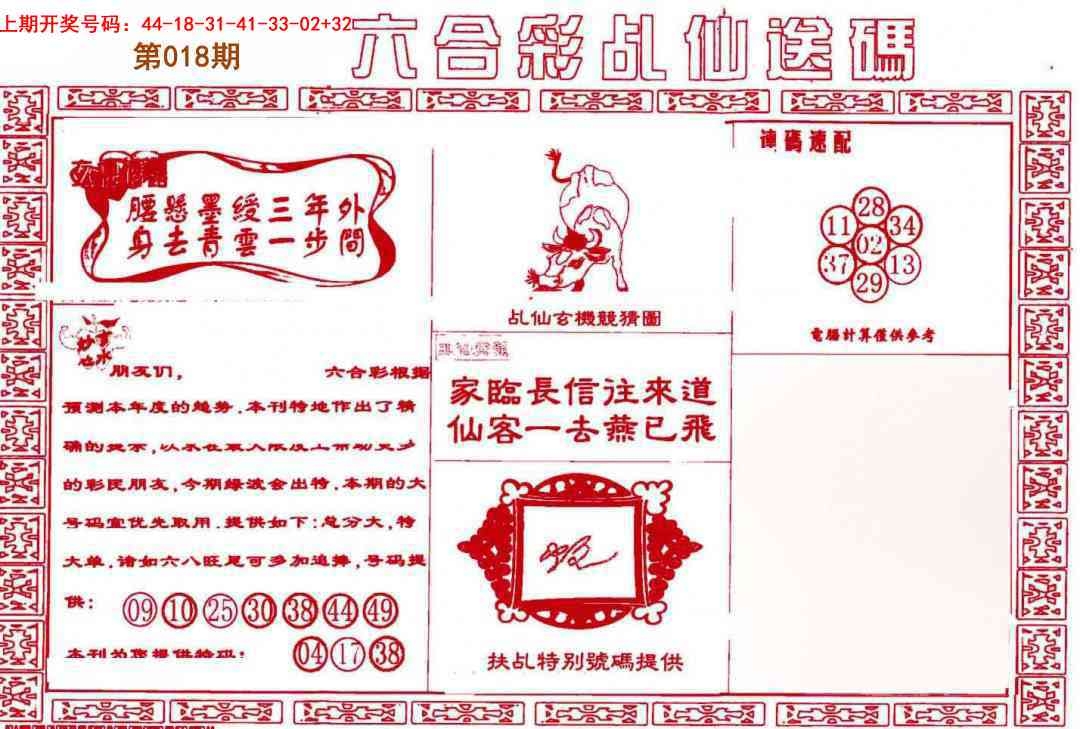 上期开奖号码：44-18-31-41-33-02+32
第018期
六合彩乩仙送碼
腰懸墨綬三年外
身去青雲一步間
朋友们，六合彩根据
预测本年度的趋势，本刊特地作出了精
确的提示，以求在最大限度上帮助更多
的彩民朋友，今期绿波会出特，本期的大
号码宜优先取用．提供如下：总分大，特
大单，诸如六八旺尾可多加追捧，号码提
供：
09 10 25 30 38 44 49
本刊为您提供特码：
04 17 38
乩仙玄機競猜圖
家臨長信往來道
仙客一去燕已飛
扶乩特別號碼提供
連碼速配
28
11 34
02
37 13
29
電腦計算僅供參考